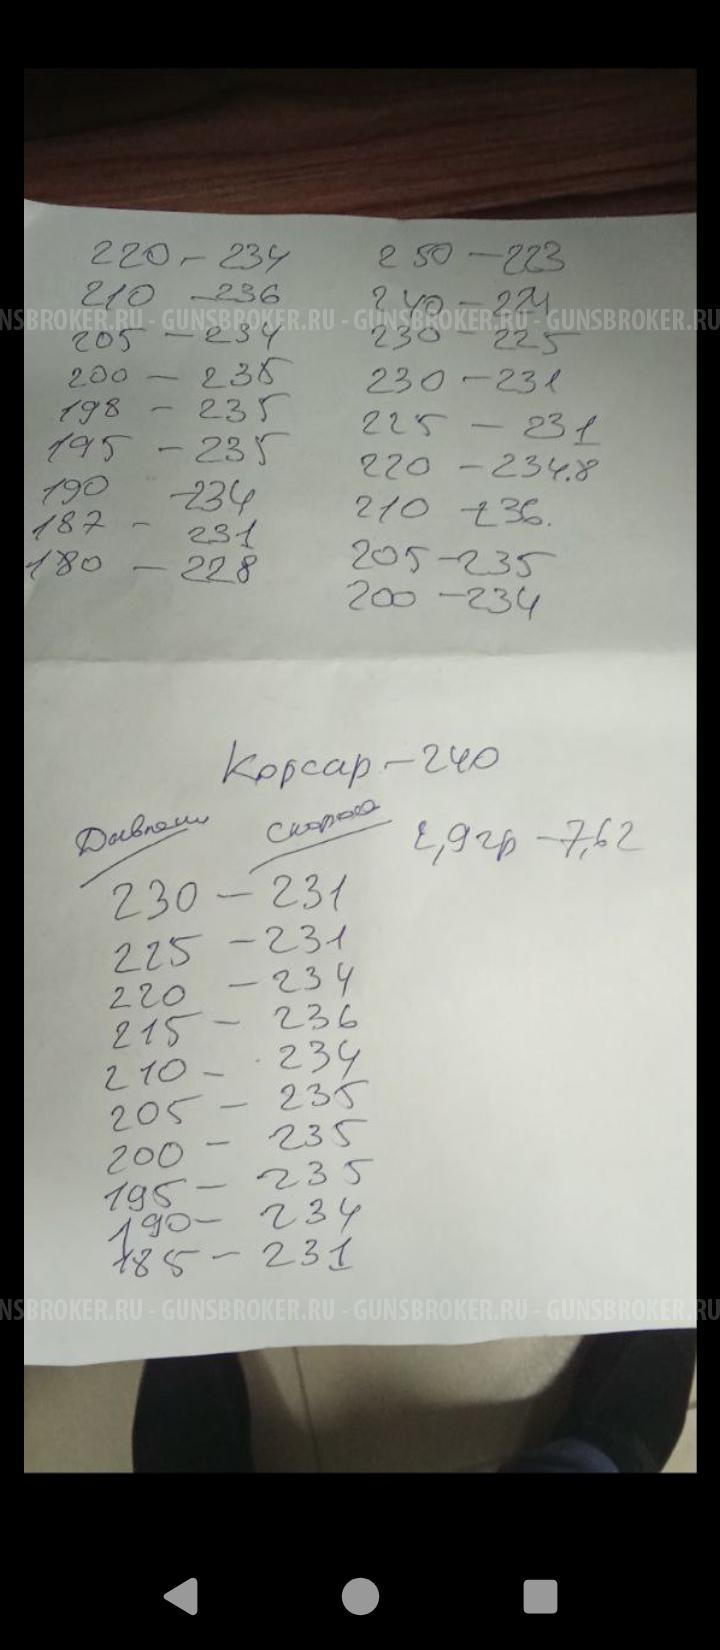 220 - 234
210 - 236
205 - 234
200 - 235
198 - 235
195 - 235
190 - 234
187 - 231
180 - 228
250 - 223
240 - 224
230 - 225
230 - 231
225 - 231
220 - 234.8
210 - 236.
205 - 235
200 - 234
NSBROKER.RU - GUNSBROKER.RU - GUNSBROKER.RU - GUNSBROKER.RU
Корсар - 240
2,9гр - 7,62
230 - 231
225 - 231
220 - 234
215 - 236
210 - 234
205 - 235
200 - 235
195 - 235
190 - 234
185 - 231
NSBROKER.RU - GUNSBROKER.RU - GUNSBROKER.RU - GUNSBROKER.RU